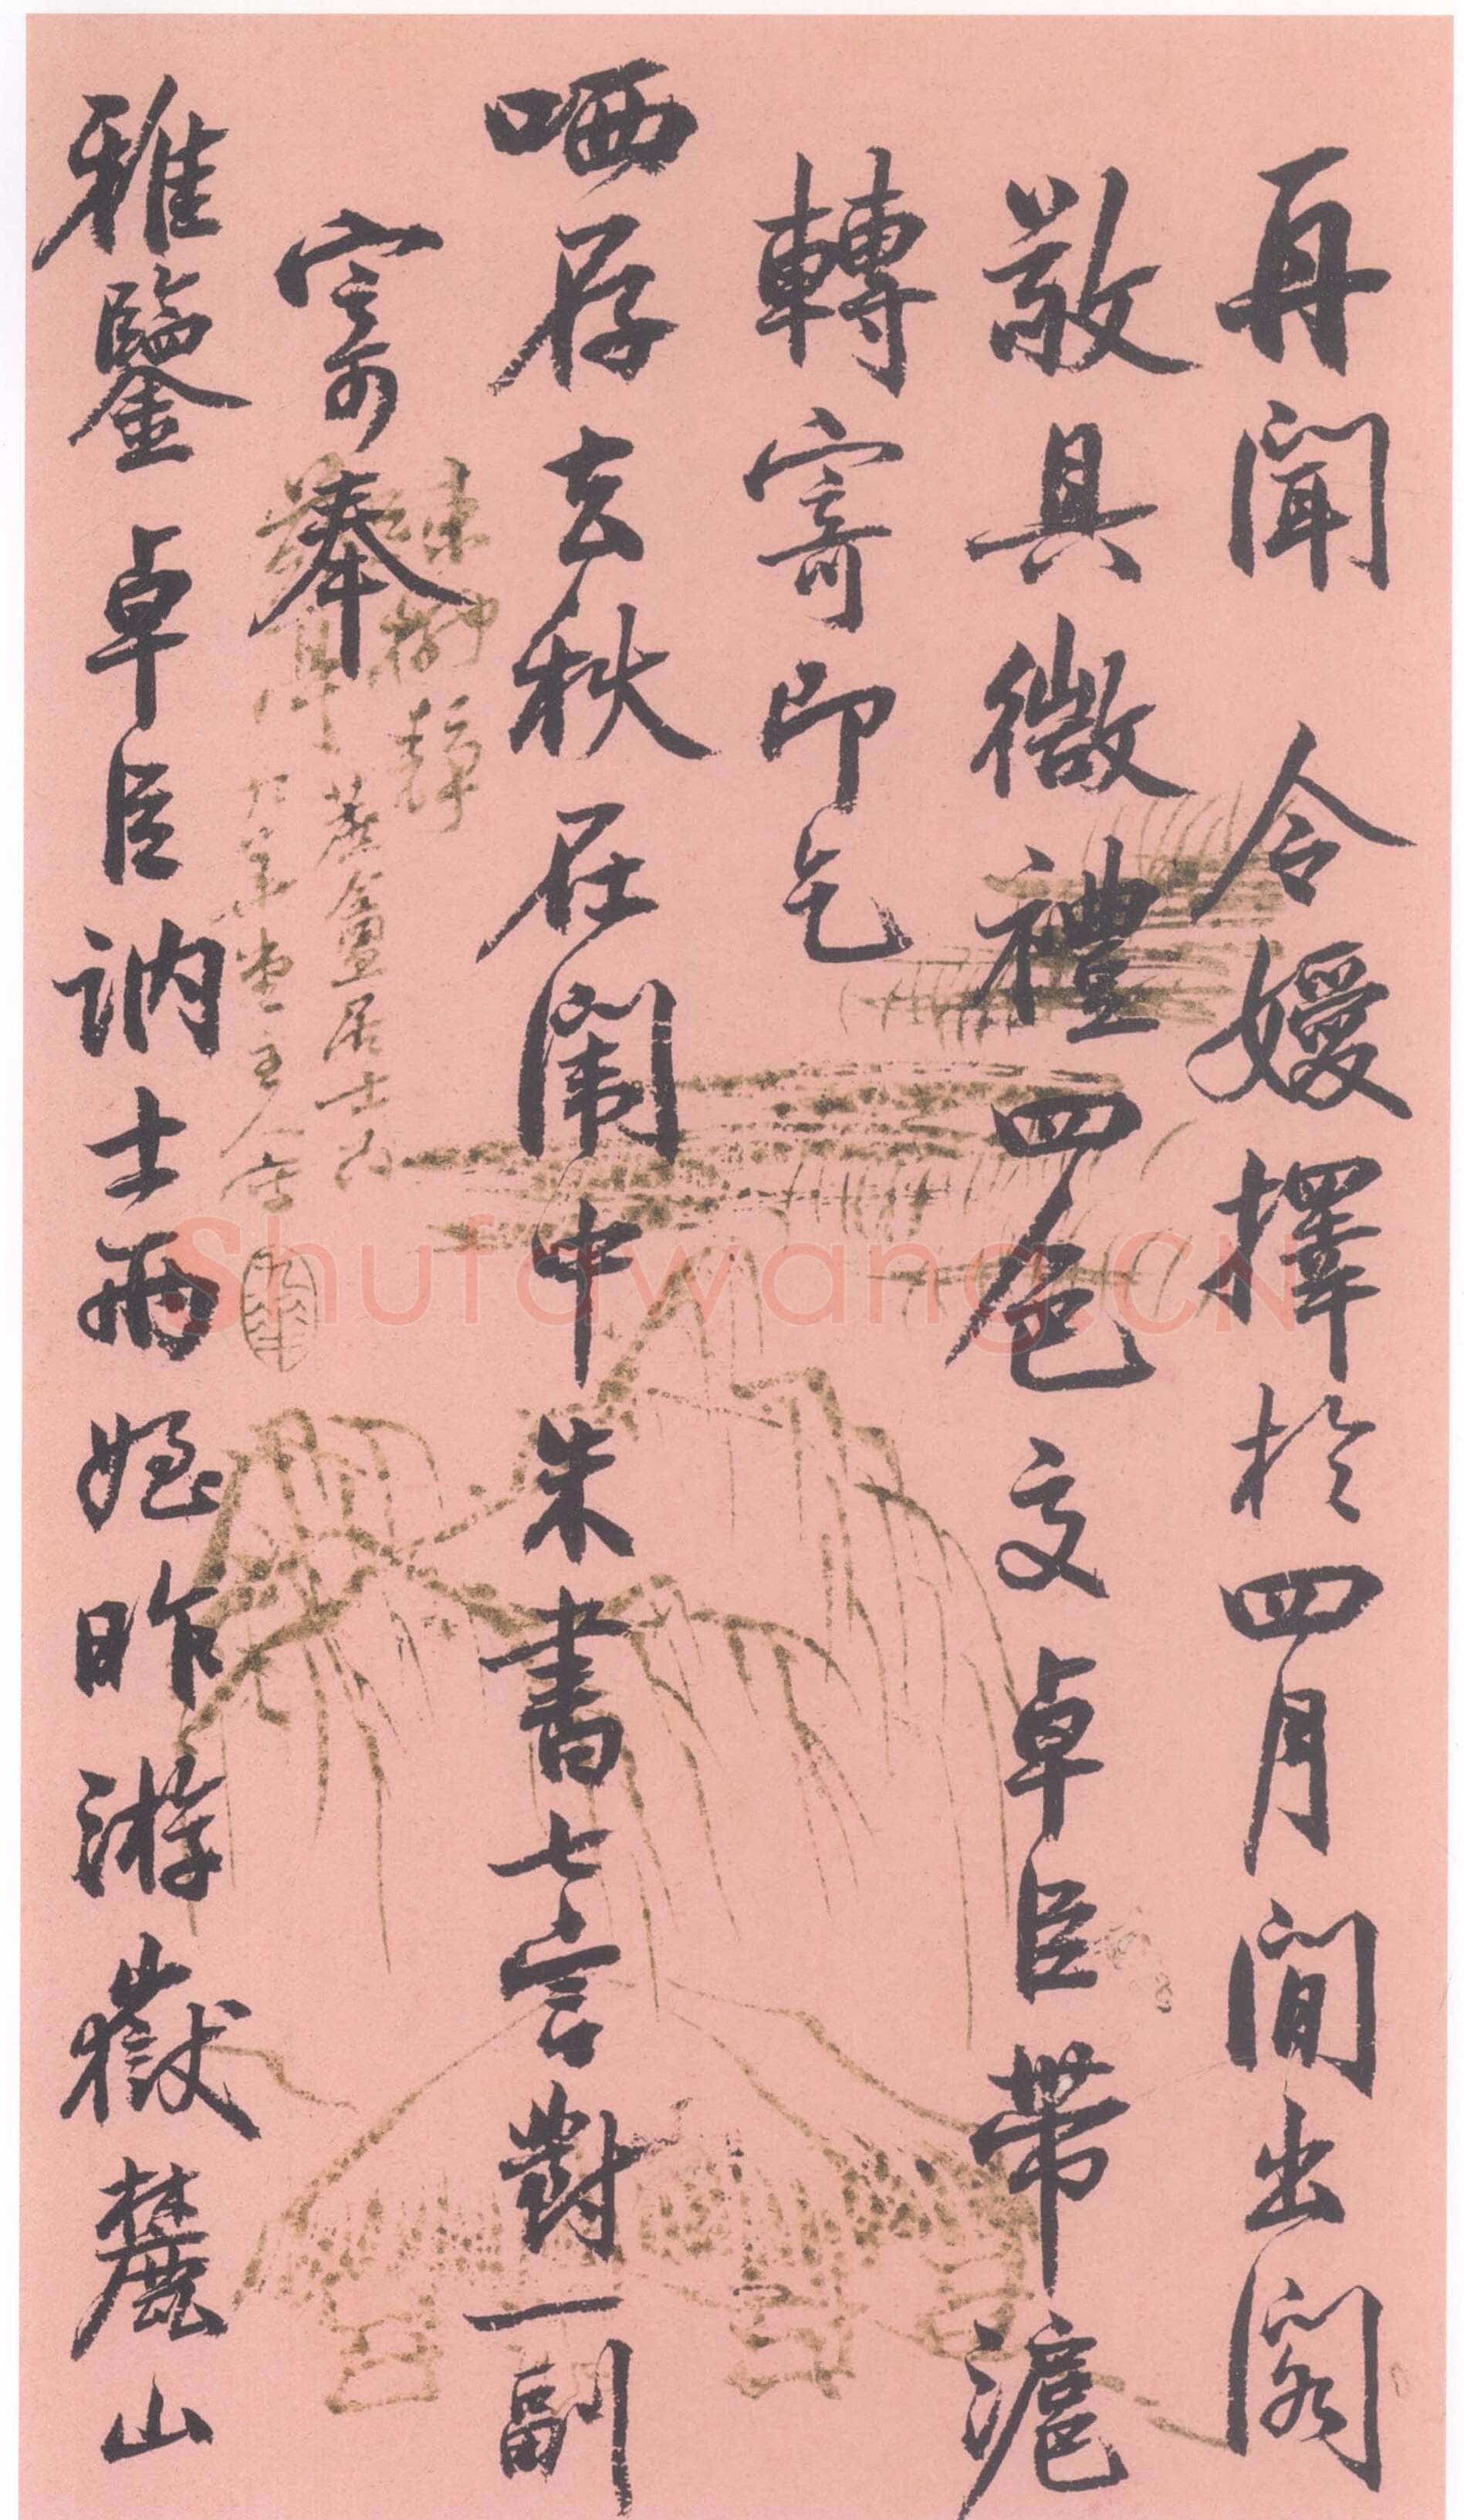 再聞 令嬡擇於四月間出閣
敬具微禮四色交卓臣帶滬
轉寄即乞
哂存去秋在闈中朱書七言對一副
寄奉
雅鑒卓臣訥士兩姪昨游嶽麓山
静
居士
主人
Shufawang.CN